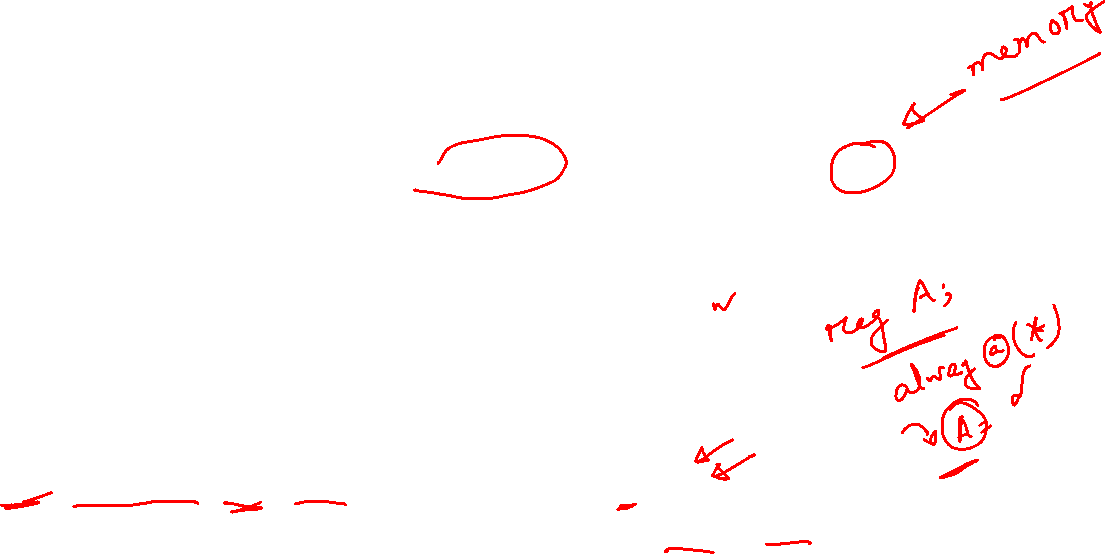 memory
reg A;
alway @(*)
A=